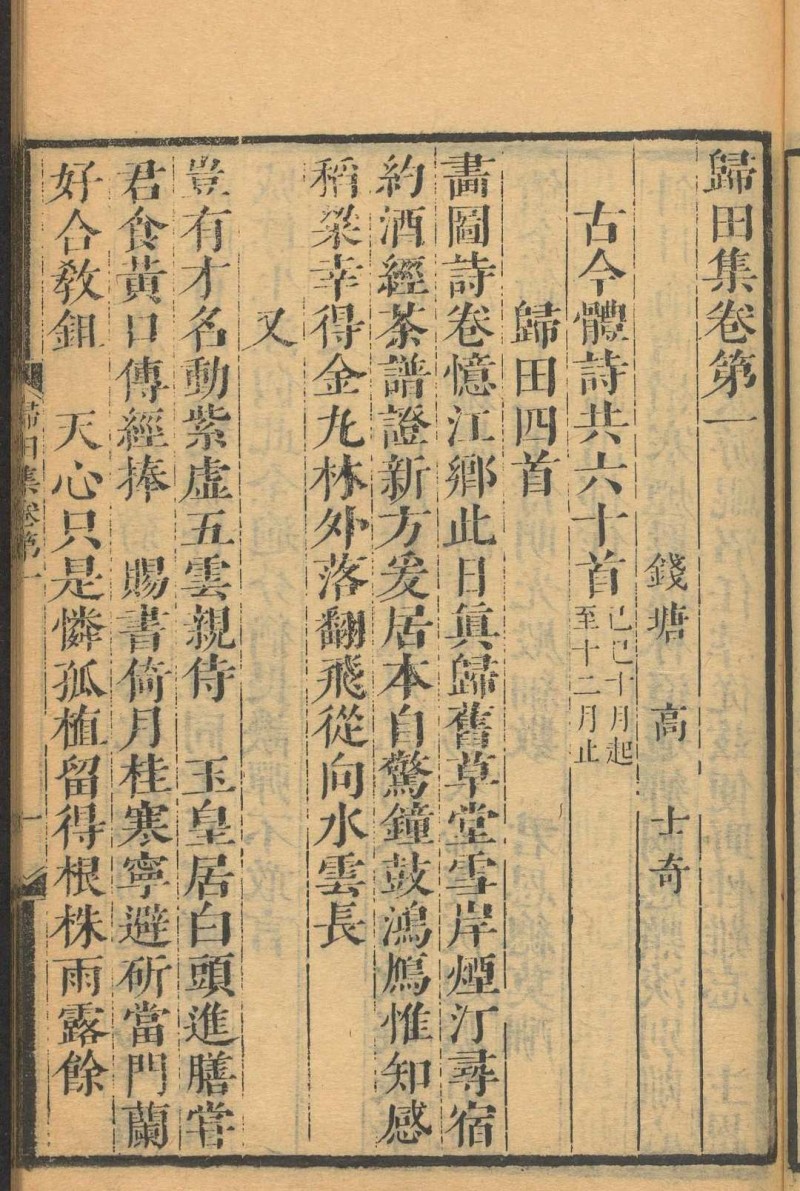 歸田集卷第一
錢塘 高 士奇
古今體詩共六十首 己巳十月起至十二月止
歸田四首
畫圖詩卷憶江鄉此日眞歸舊草堂雪岸煙汀尋宿
約酒經茶譜證新方爰居本自驚鐘鼓鴻鴈惟知感
稻粱幸得金九林外落翻飛從向水雲長
又
豈有才名動紫虛五雲親侍 玉皇居白頭進膳嘗
君食黃口傳經捧 賜書倚月桂寒寧避斫當門蘭
好合敎鉏 天心只是憐孤植留得根株雨露餘
歸田集卷第一
一